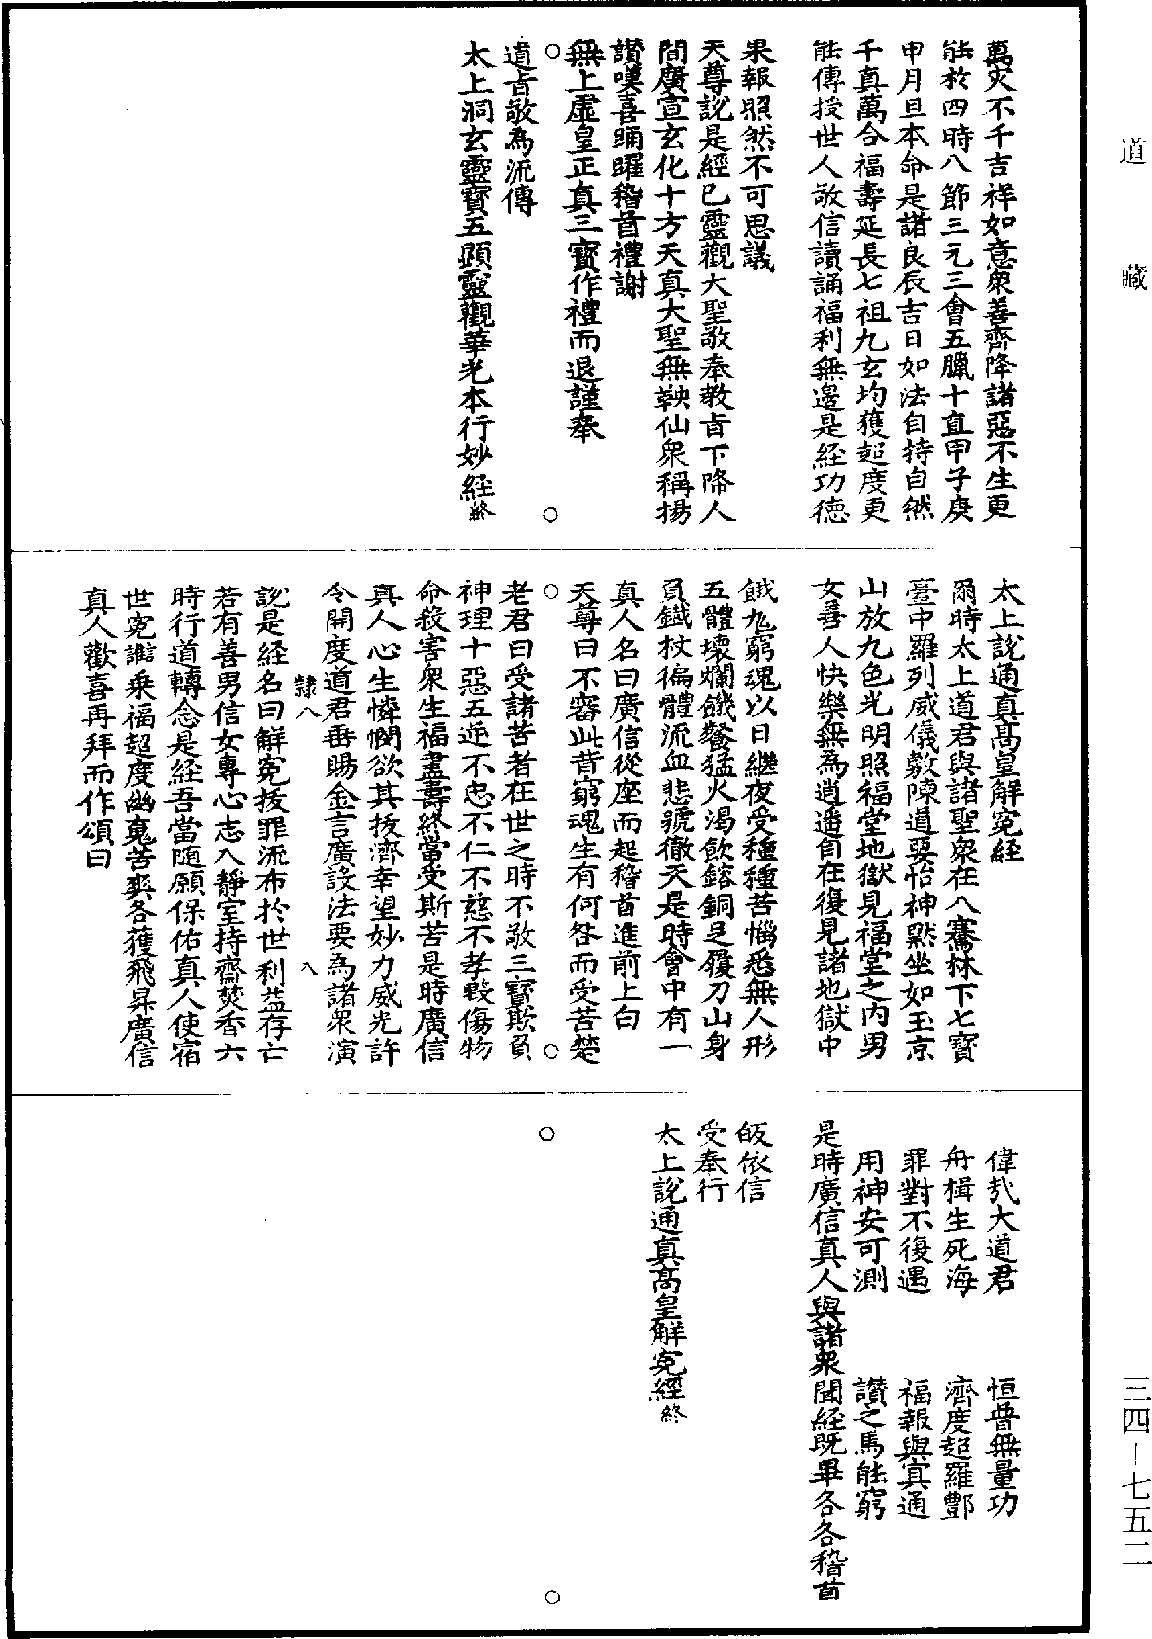 道藏
萬灾不干吉祥如意衆善齊降諸惡不生更
能於四時八節三元三會五臘十直甲子庚
申月旦本命是諸良辰吉日如法自持自然
千真萬合福壽延長七祖九玄均獲超度更
能傳授世人敬信讀誦福利無邊是經功德
果報照然不可思議
天尊說是經已靈觀大聖敬奉教旨下降人
間廣宣玄化十方天真大聖無鞅仙衆稱揚
讚嘆喜踊躍稽首禮謝
無上虛皇正真三寳作禮而退謹奉
道旨敬為流傳
太上洞玄靈寳五顯靈觀華光本行妙經終
太上說通真高皇解冤經
爾時太上道君與諸聖衆在八騫林下七寳
臺中羅列威儀敷陳道要怡神默坐如玉京
山放九色光明照福堂地獄見福堂之内男
女善人快樂無為逍遥自在復見諸地獄中
餓鬼窮魂以日繼夜受種種苦惱悉無人形
五體壞爛饑餐猛火渴飲鎔銅足履刀山身
負鐵杖徧體流血悲號徹天是時會中有一
真人名曰廣信從座而起稽首進前上白
天尊曰不審此昔窮魂生有何咎而受苦楚
老君曰受諸苦者在世之時不敬三寳欺負
神理十惡五逆不忠不仁不慈不孝毀傷物
命殺害衆生福盡壽終當受斯苦是時廣信
真人心生憐憫欲其拔濟幸望妙力威光許
令開度道君垂賜金言廣設法要為諸衆演
隸八 八
說是經名曰解冤拔罪流布於世利益存亡
若有善男信女專心志入靜室持齋焚香六
時行道轉念是經吾當隨願保佑真人使宿
世冤讎乘福超度幽魂苦爽各獲飛昇廣信
真人歡喜再拜而作頌曰
偉哉大道君 恒普無量功
舟楫生死海 濟度超羅酆
罪對不復遇 福報與寘通
用神安可測 讚之焉能窮
是時廣信真人與諸衆聞經既畢各各稽首
皈依信
受奉行
太上說通真高皇解冤經終
三四—七五二